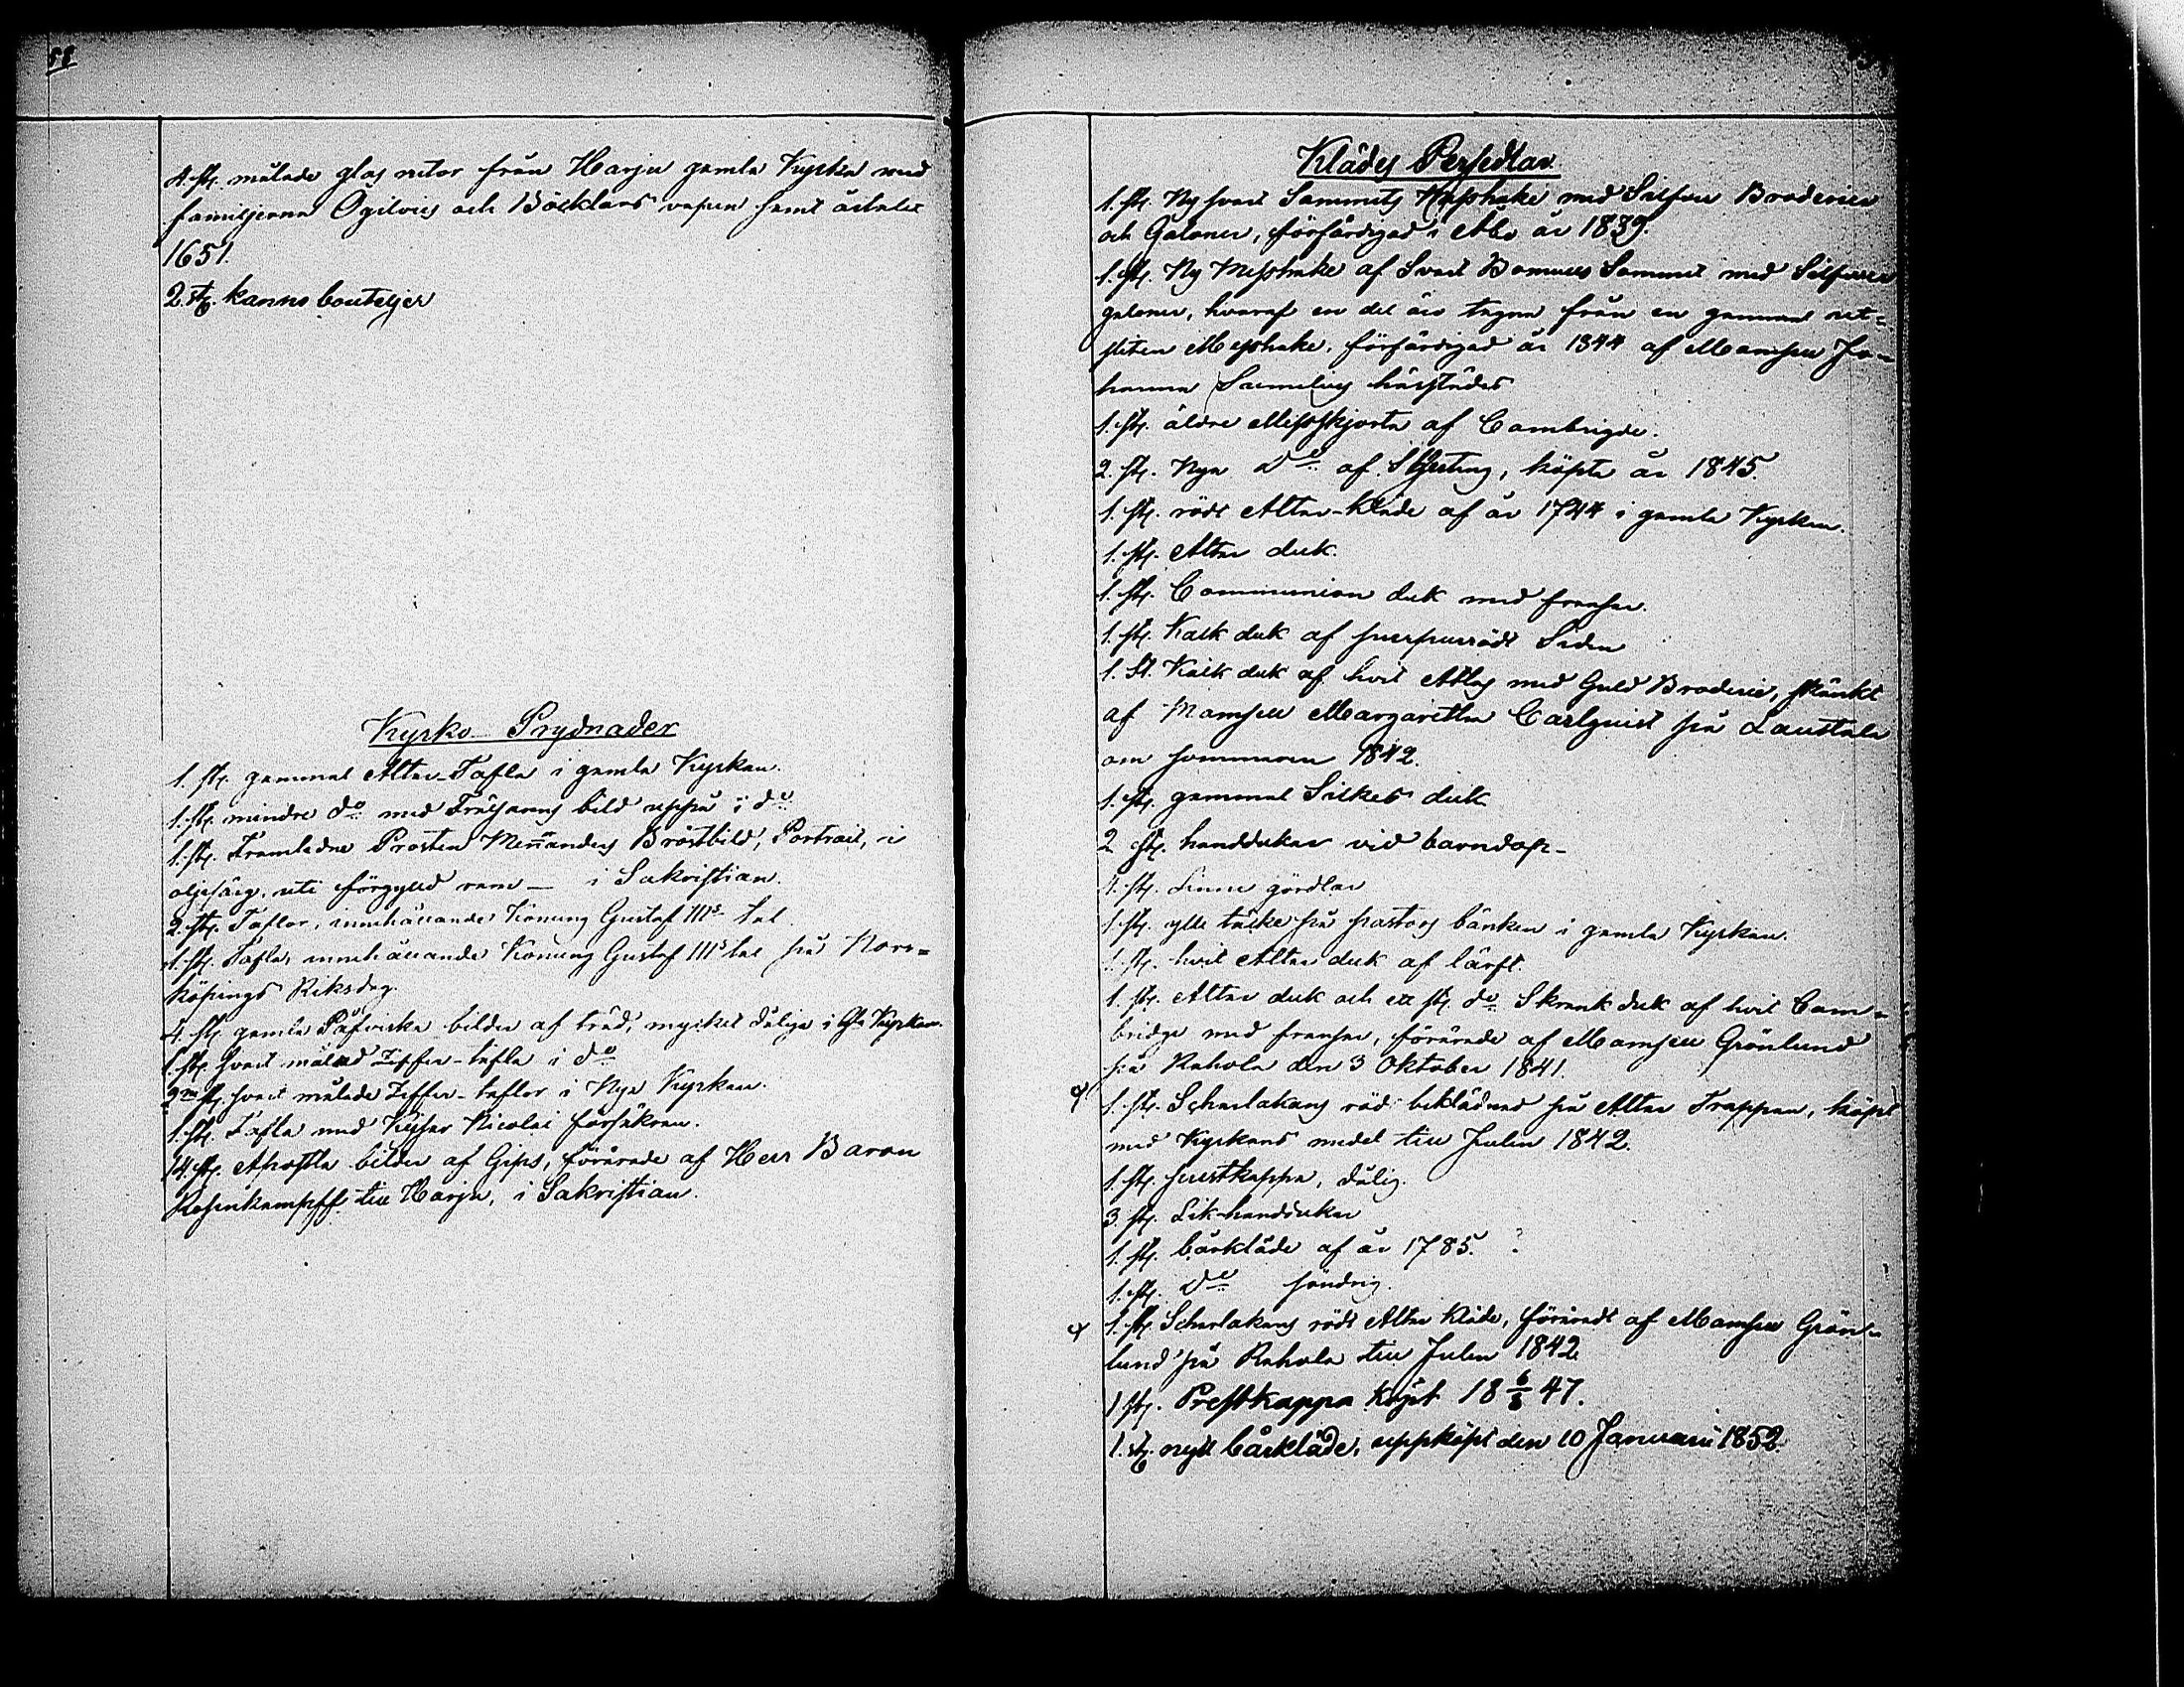 58
4. st. målade glas rutor från Harju gamla Kyrka med
familjerna Ogilvies och Böcklars vapen samt årtalet
1651.
2. st. kanns bouteljer
Kyrko-Prydnader
1. st. gammal Altar-Tafla i gamla Kyrkan.
1. st. mindre do med Frälsarens bild uppå i do
1. st. Framledne Prosten Mennanders Bröstbild, Portrait, i
oljefärg, uti förgylld ram — i Sakristian.
2. st. Taflor, innehållande Konung Gustaf IIIs tal
1. st. Tafla, innehållande Konung Gustaf IIIs tal på Norr=
köpings Riksdag.
4. st. gamla Påfviska bilder af träd, mycket dåliga i Gla Kyrkan.
1. st. svart målad Ziffer-tafla i do
2ne st. svart målade Ziffer-taflor i Nya Kyrkan.
1. st. Tafla med Kejsar Nicolai försäkran.
14. st. Apostla bilder af Gips, förärade af Herr Baron
Rosenkampff till Harju, i Sakristian.
Klädes Persedlar
1. st. Ny svart Sammets Messhake med Silfver Broderier
och Galoner, förfärdigad i Åbo år 1839.
1. st. Ny Messhake af Svart Bomulls Sammet med Silfver
galoner, hvaraf en del äro tagna från en gammal ut=
sliten Messhake, förfärdigad år 1844 af Mamsell Jo=
hanna Sumelius härstädes
1. st. äldre Messskjorta af Cambrigde.
2. st. Nya do af Shirting, köpta år 1845.
1. st. rödt Altar-kläde af år 1744 i gamla Kyrkan.
1. st. Altar duk.
1. st. Communion duk med fransar.
1. st. Kalk duk af purpurrödt Siden
1. St. Kalk duk af hvit Atlas med Guld Broderie, skänkt
af Mamsell Margaretha Carlquist på Laustala
om sommaren 1842.
1. st. gammal Silkes duk
2 st. handdukar vid barndop-
4. st. Linne gördlar
1. st. ylle täcke på pastors bänken i gamla Kyrkan.
1. st. hvit Altar duk af lärft.
1. st. Altar duk och ett st. do Skrank duk af hvit Cam=
bridge med fransar, förärade af Mamsell Grönlund
på Rahola den 3 Oktober 1841.
1. st. Scharlakans röd beklädnad på Altar Trappan, köpt
med Kyrkans medel till Julen 1842.
1. st. prestkappa, dålig.
3. st. Lik-handdukar
1. st. bårkläde af år 1785. ?
1. st. do söndrig.
1. st. Scharlakans rödt Altar kläde, förärdt af Mamsell Grön=
lund på Rahola till Julen 1842
1 st. Prestkappa köpt 18 6/8 47.
1. st. nytt bårkläde, uppköpt den 10 Januarii 1852